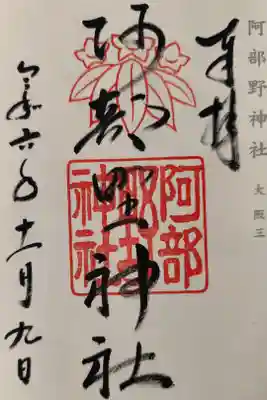 阿部野神社
大阪三
奉拝
阿部野神社
阿部野神社
令和六年十一月九日